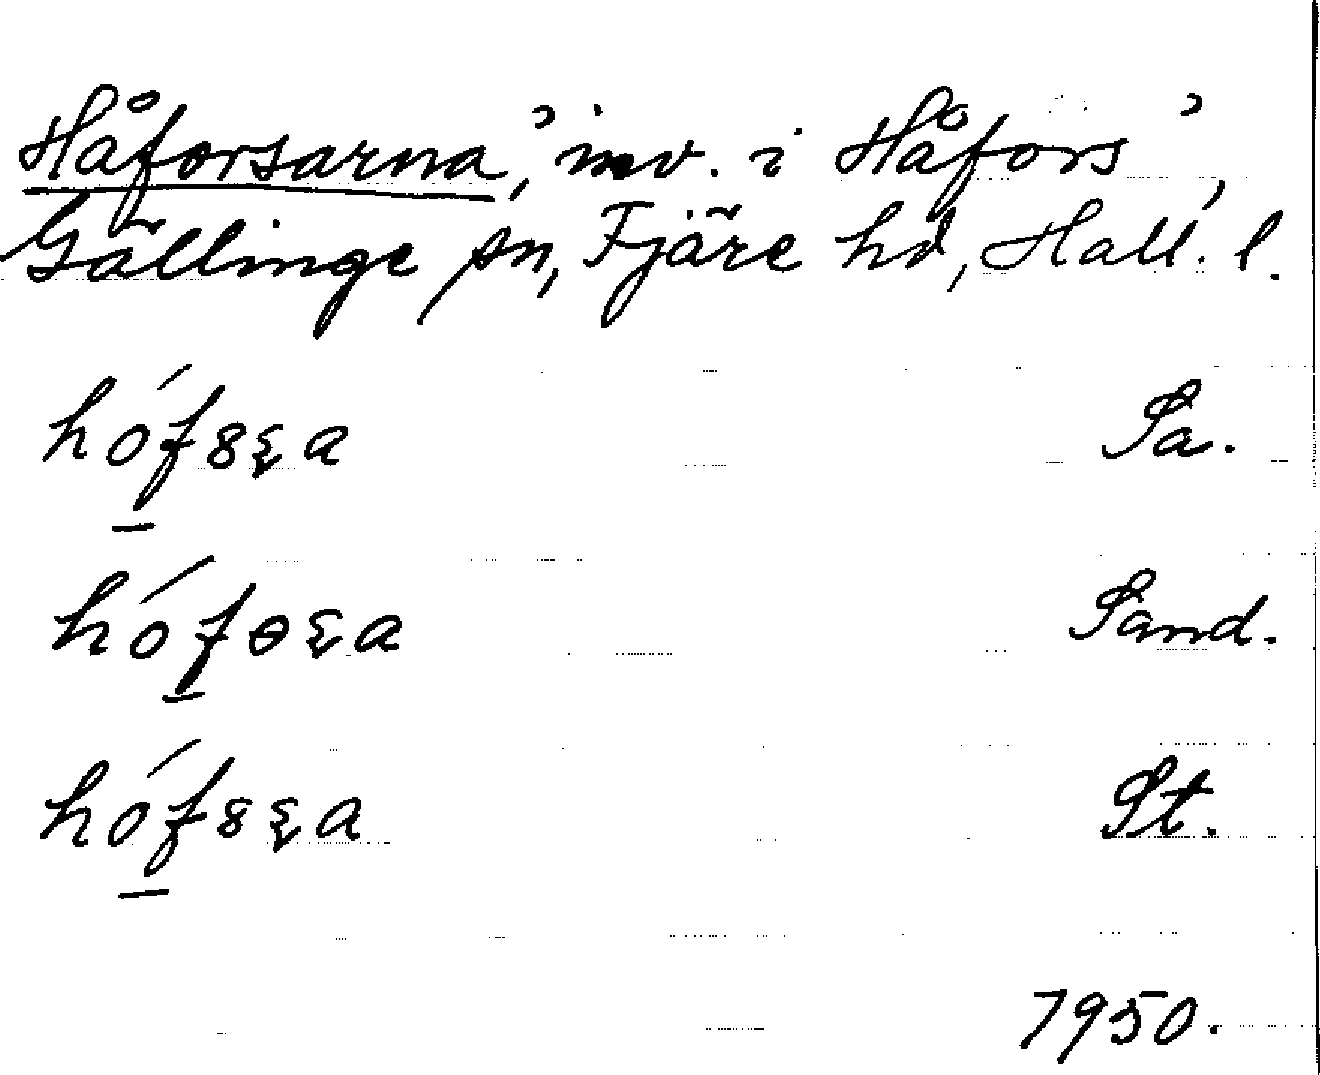 Håforsarna, ’inv. i Håfors’,
Gällinge sn, Fjäre hd, Hall. l.
Sa.
Sand.
St.
1950.